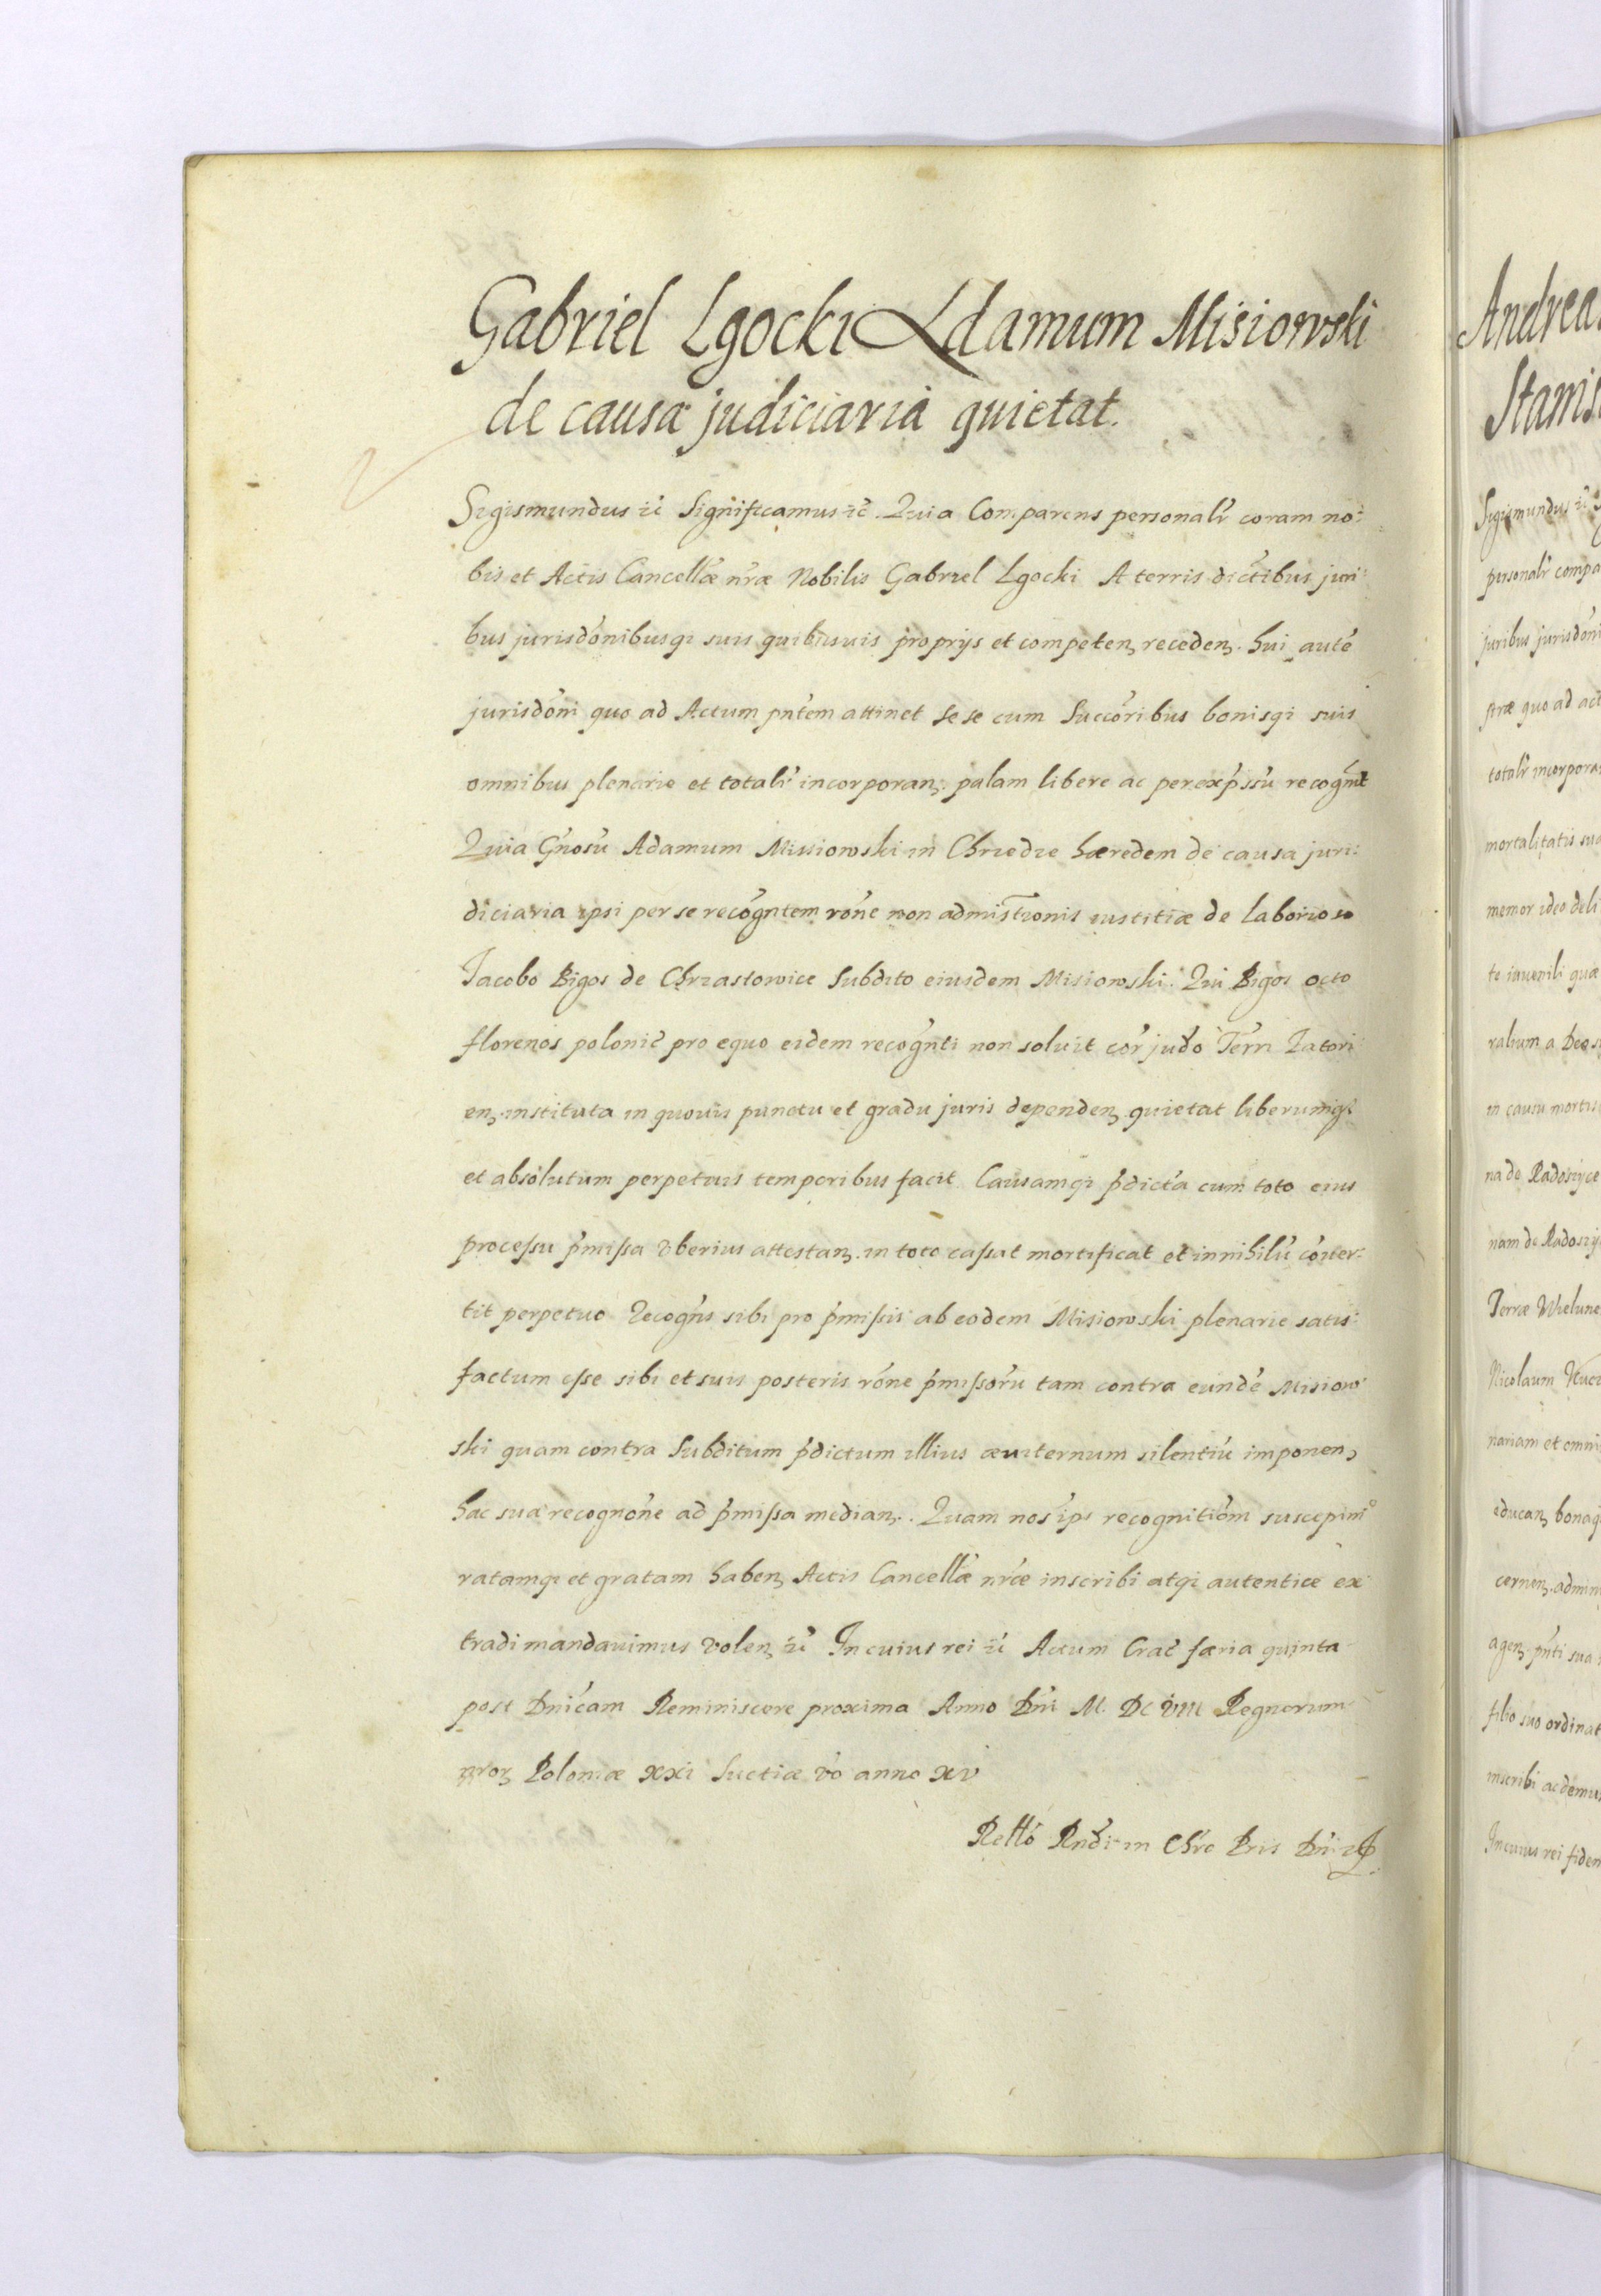 Gabriel Lgocki Adamum Misiowski
de causa judiciaria quietat.
Sigismundus &c̃ Significamus &c̃ Quia Comparens personalr̃ coram no:
bis et Actis Cancellæ nr̃æ Nobilis Gabriel Lgocki A terris dictibus juri:
bus jurisdõnibusqɜ suis quibusuis proprijs et competenʒ recedenʒ. hui autẽ
jurisdõni quo ad Actum pñtem attinet se se cum Succõribus bonisqɜ suis
omnibus plenarie et totalr̃ incorporanʒ palam libere ac per exp̃ssũ recogñit
Quia Gñosũ Adamum Misiowski in Chrzedze hæredem de causa juri:
diciaria ipsi per se recogñtem rõne non admistionis iustitiæ de Laborioso
Jacobo Bigos de Chrzastowice Subdito eiusdem Misiowski. Qui Bigos octo
florenos polonic̃ pro equo eidem recogñti non soluit cor̃ judõ Terr̃ Zatori
enʒ instituta in quouis punctu et gradu juris dependenʒ quietat liberumqɜ
et absolutum perpetuis temporibus facit Causamqɜ p̃dictã cum toto eius
processu p̃missa vberius attestanʒ in toto cassat mortificat et in nihilũ cõuer:
tit perpetuo Recogñs sibi pro p̃missis ab eodem Misiowski plenarie satis:
factum esse sibi et suis posteris rõne p̃missorũ tam contra eundẽ Misiow
ski quam contra Subditum p̃dictum illius æuiternum silentiũ imponenʒ
hac sua recognõne ad p̃missa medianʒ. Quam nos ips̃ recognitiõm suscepim⁹
ratamqɜ et gratam habenʒ Actis Cancellæ nr̃æ inscribi atqɜ autentice ex
tradi mandauimus volenʒ &c̃ In cuius rei &c̃ Actum Crac̃ færia quinta
post Dnĩcam Reminiscere proxima Anno Dñi M. DC VIII Regnorum
nrorʒ Poloniæ XXI Suetiæ vo anno XV
Rellõ Rndĩ in Chrõ Pris Dñi &
Andrea
Stanis
Sigismundus &c̃ S
personalr̃ compa
juribus jurisdõni
stræ quo ad act
totalr̃ incorpora
mortalitatis sua
memor ideo deli
te iuuenili quæ
ralium a Deo s
in causu mortis
na de Radoszyce
nam de Radoszy
Terræ Wielune
Nicolaum
nariam et omni
educanʒ bonaq
cernenʒ admin
agenʒ pñti sua
filio suo ordinat
inscribi ac demus
In cuius rei fidem